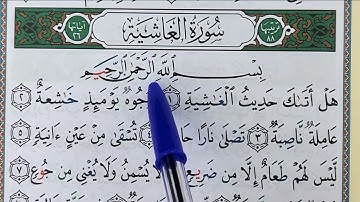 ترتيبها ٨٨ سُورَةُ الغَاشِيَةِ آياتها ٢٦
بِسْمِ اللَّهِ الرَّحْمَٰنِ الرَّحِيمِ
هَلْ أَتَىٰكَ حَدِيثُ ٱلْغَٰشِيَةِ ١ وُجُوهٌ يَوْمَئِذٍ خَٰشِعَةٌ ٢
عَامِلَةٌ نَّاصِبَةٌ ٣ تَصْلَىٰ نَارًا حَامِيَةً ٤ تُسْقَىٰ مِنْ عَيْنٍ ءَانِيَةٍ ٥
لَّيْسَ لَهُمْ طَعَامٌ إِلَّا مِن ضَرِيعٍ ٦ لَّا يُسْمِنُ وَلَا يُغْنِى مِن جُوعٍ ٧